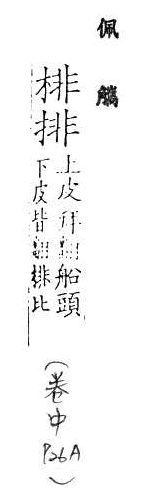 佩觽
棑排
上皮拜翻船頭
下皮皆翻排比
(卷中
P26A)